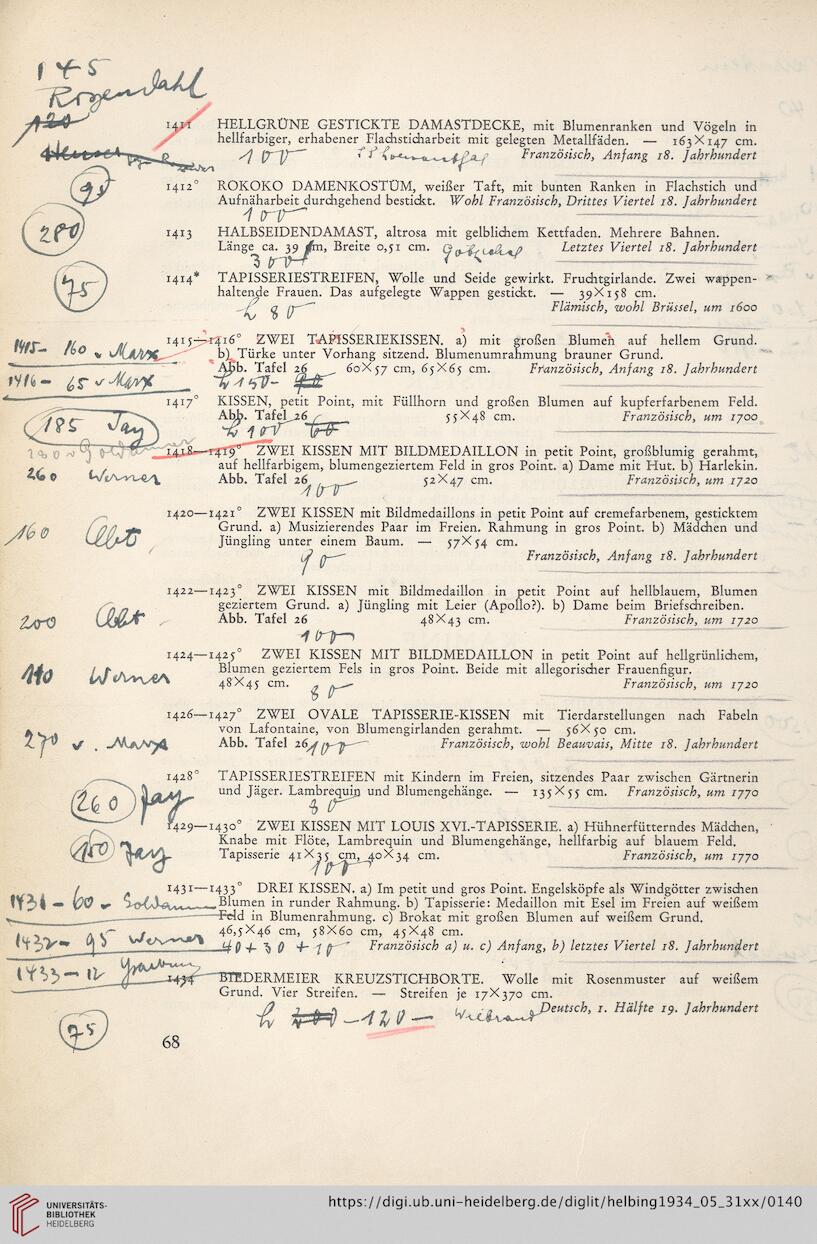 145
Rosendahl
120
1411 HELLGRÜNE GESTICKTE DAMASTDECKE, mit Blumenranken und Vögeln in
hellfarbiger, erhabener Flachsticharbeit mit gelegten Metallfäden. — 163×147 cm.
100 Französisch, Anfang 18. Jahrhundert
95
1412° ROKOKO DAMENKOSTÜM, weißer Taft, mit bunten Ranken in Flachstich und
Aufnäharbeit durchgehend bestickt. Wohl Französisch, Drittes Viertel 18. Jahrhundert
100
280
1413 HALBSEIDENDAMAST, altrosa mit gelblichem Kettfaden. Mehrere Bahnen.
Länge ca. 39 m, Breite 0,51 cm. Letztes Viertel 18. Jahrhundert
300
75
1414* TAPISSERIESTREIFEN, Wolle und Seide gewirkt. Fruchtgirlande. Zwei wappen-
haltende Frauen. Das aufgelegte Wappen gestickt. — 39×158 cm.
80 Flämisch, wohl Brüssel, um 1600
1415—1416° ZWEI TAPISSERIEKISSEN. a) mit großen Blumen auf hellem Grund.
1415- 160 v Marx
b) Türke unter Vorhang sitzend. Blumenumrahmung brauner Grund.
Abb. Tafel 26 60×57 cm, 65×65 cm. Französisch, Anfang 18. Jahrhundert
1416- 65 v Marx
150-
1417° KISSEN, petit Point, mit Füllhorn und großen Blumen auf kupferfarbenem Feld.
Abb. Tafel 26 55×48 cm. Französisch, um 1700
185 Jay
100 60
1418—1419° ZWEI KISSEN MIT BILDMEDAILLON in petit Point, großblumig gerahmt,
auf hellfarbigem, blumengeziertem Feld in gros Point. a) Dame mit Hut. b) Harlekin.
260 Werner
Abb. Tafel 26 52×47 cm. Französisch, um 1720
100
1420—1421° ZWEI KISSEN mit Bildmedaillons in petit Point auf cremefarbenem, gesticktem
Grund. a) Musizierendes Paar im Freien. Rahmung in gros Point. b) Mädchen und
160 Abt
Jüngling unter einem Baum. — 57×54 cm.
90 Französisch, Anfang 18. Jahrhundert
1422—1423° ZWEI KISSEN mit Bildmedaillon in petit Point auf hellblauem, Blumen
geziertem Grund. a) Jüngling mit Leier (Apollo?). b) Dame beim Briefschreiben.
200 Abt
Abb. Tafel 26 48×43 cm. Französisch, um 1720
100
1424—1425° ZWEI KISSEN MIT BILDMEDAILLON in petit Point auf hellgrünlichem,
Blumen geziertem Fels in gros Point. Beide mit allegorischer Frauenfigur.
Werner
48×45 cm. 80 Französisch, um 1720
1426—1427° ZWEI OVALE TAPISSERIE-KISSEN mit Tierdarstellungen nach Fabeln
von Lafontaine, von Blumengirlanden gerahmt. — 56×50 cm.
270 v. Marx
Abb. Tafel 26 100 Französisch, wohl Beauvais, Mitte 18. Jahrhundert
1428° TAPISSERIESTREIFEN mit Kindern im Freien, sitzendes Paar zwischen Gärtnerin
und Jäger. Lambrequin und Blumengehänge. — 135×55 cm. Französisch, um 1770
260 Jay
80
1429—1430° ZWEI KISSEN MIT LOUIS XVI.-TAPISSERIE. a) Hühnerfütterndes Mädchen,
Knabe mit Flöte, Lambrequin und Blumengehänge, hellfarbig auf blauem Feld.
150 Jay
Tapisserie 41×35 cm, 40×34 cm. Französisch, um 1770
100
1431—1433° DREI KISSEN. a) Im petit und gros Point. Engelsköpfe als Windgötter zwischen
1431 - 60 -
Blumen in runder Rahmung. b) Tapisserie: Medaillon mit Esel im Freien auf weißem
Feld in Blumenrahmung. c) Brokat mit großen Blumen auf weißem Grund.
46,5×46 cm, 58×60 cm, 45×48 cm.
1432- 95 Werner
40 + 30 + 10 Französisch a) u. c) Anfang, b) letztes Viertel 18. Jahrhundert
1433 - 12
1434 BIEDERMEIER KREUZSTICHBORTE. Wolle mit Rosenmuster auf weißem
Grund. Vier Streifen. — Streifen je 17×370 cm.
Deutsch, 1. Hälfte 19. Jahrhundert
200 - 120 -
75
68
UNIVERSITÄTS-
BIBLIOTHEK
HEIDELBERG
https://digi.ub.uni-heidelberg.de/diglit/helbing1934_05_31xx/0140